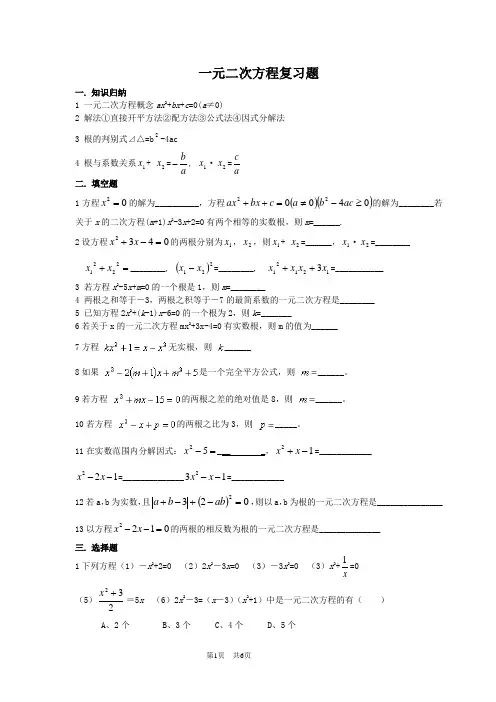 一元二次方程复习题
一. 知识归纳
1 一元二次方程概念 ax²+bx+c=0(a≠0)
2 解法①直接开平方法②配方法③公式法④因式分解法
3 根的判别式⊿△=b²-4ac
4 根与系数关系x₁+ x₂=−b/a, x₁·x₂=c/a
二. 填空题
1方程x²=0的解为__________, 方程ax²+bx+c=0(a≠0)(b²−4ac≥0)的解为________若
关于x的二次方程(m+1)x²-3x+2=0有两个相等的实数根, 则m=______.
2设方程x²+3x−4=0的两根分别为x₁, x₂, 则x₁+ x₂=______, x₁·x₂=________
x₁²+x₂²=________, (x₁−x₂)²=________, x₁²+x₁x₂+3x₁=___________
3 若方程x²-5x+m=0的一个根是1, 则m=________
4 两根之和等于-3, 两根之积等于-7的最简系数的一元二次方程是________
5 已知方程2x²+(k-1)x-6=0的一个根为2, 则k=_______
6若关于x的一元二次方程mx²+3x-4=0有实数根, 则m的值为______
7方程 kx²+1=x−x²无实根, 则 k______
8如果 x²−2(m+1)x+m²+5是一个完全平方公式, 则 m=______。
9若方程 x²+mx−15=0的两根之差的绝对值是8, 则 m=______。
10若方程 x²−x+p=0的两根之比为3, 则 p=_____。
11在实数范围内分解因式: x²−5=__________, x²+x−1=____________
x²−2x−1=______________3x²−x−1=____________
12若a,b为实数,且|a+b−3|+(2−ab)²=0,则以a,b为根的一元二次方程是_______________
13以方程x²−2x−1=0的两根的相反数为根的一元二次方程是______________
三. 选择题
1下列方程(1)-x²+2=0 (2)2x²-3x=0 (3)-3x²=0 (3)x²+1/x=0
(5)(x²+3)/2=5x (6)2x²-3=(x-3)(x²+1)中是一元二次方程的有( )
A、2个 B、3个 C、4个 D、5个
第1页 共6页